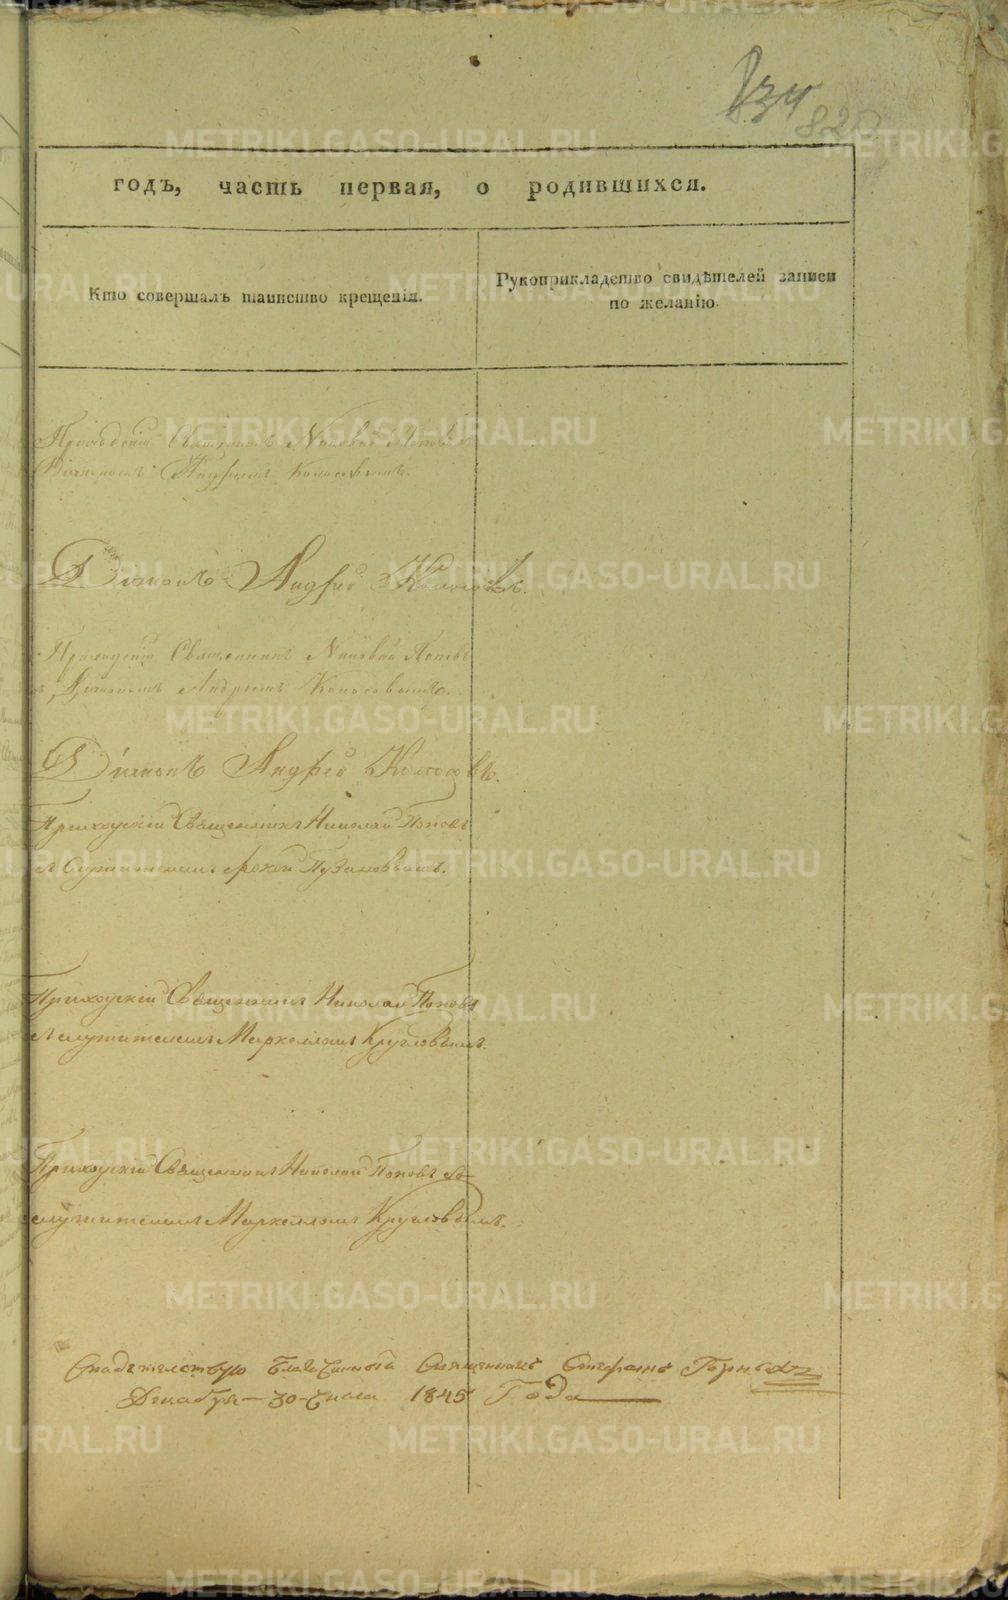 834
828
годъ, часть первая, о родившихся.
Кто совершалъ таинство крещенія.
Рукоприкладство свидѣтелей записи
по желанію.
Приходскій Священникъ Николай Поповъ
Діакономъ Андреемъ Колосовымъ.
Діаконъ Андрей Колосовъ.
Приходскій Священникъ Николай Поповъ
съ Діакономъ Андреемъ Колосовымъ.
Діаконъ Андрей Колосовъ.
Приходскій Священникъ Николай Поповъ
съ служителемъ Фокой Пузановымъ.
Приходскій Священникъ Николай Поповъ
съ служителемъ Маркелломъ Кругловымъ.
Приходскій Священникъ Николай Поповъ съ
служителемъ Маркелломъ Кругловымъ.
Свидѣтельствую Благочинный Священникъ Стефанъ
Декабря 30 числа 1845 Года
METRIKI.GASO-URAL.RU